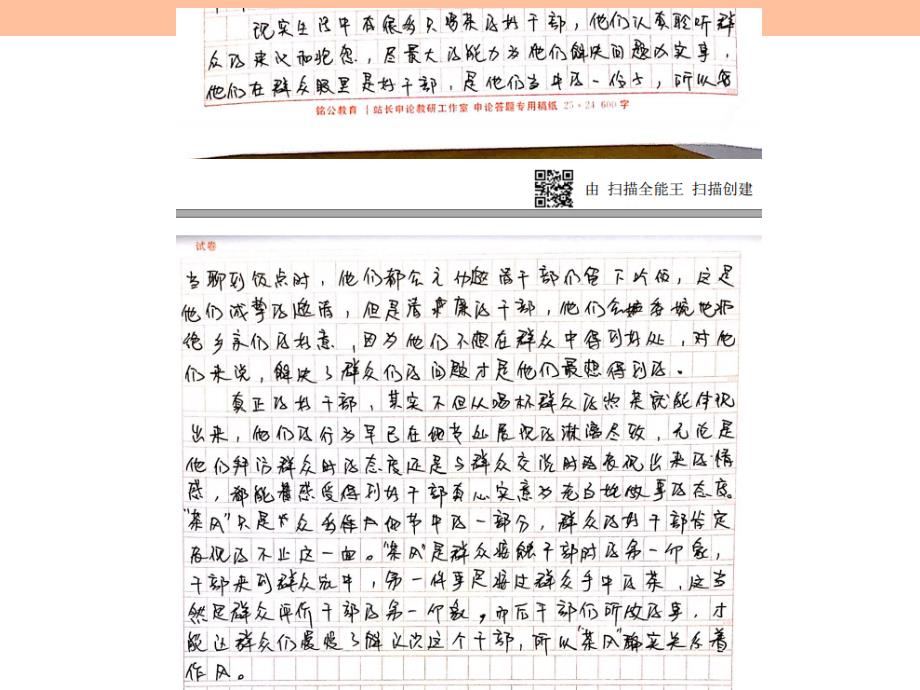 现实生活中有很多只喝茶的好干部，他们认真聆听群
众的建议和抱怨，尽最大的能力为他们解决问题办实事，
他们在群众眼里是好干部，是他们当中的一份子，所以每
铭公教育 | 站长申论教研工作室 申论答题专用稿纸 25×24 600字
由 扫描全能王 扫描创建
试卷
当聊到饭点时，他们都会邀请干部们留下吃饭，这是
他们诚挚的邀请，但是清廉的干部，他们会婉拒
绝乡亲们的好意，因为他们不想在群众中得到好处，对他
们来说，解决了群众们的问题才是他们最想得到的。
真正的好干部，其实不但从喝杯群众的热茶就能体现
出来，他们的行为早已在他处展现的淋漓尽致，无论是
他们拜访群众时的态度还是与群众交谈时的表现出来的情
感，都能感受得到好干部真心实意为老百姓做事的态度。
“茶风”只是众多作风细节中的一部分，群众的好干部肯定
表现的不止这一面。“茶风”是群众接触干部时的第一印象，
干部来到群众家中，第一件事是接过群众手中的茶，这当
然是群众评价干部的第一印象。而后干部们所做的事，才
能让群众们慢慢了解认识这个干部，所以“茶风”确实关系着
作风。